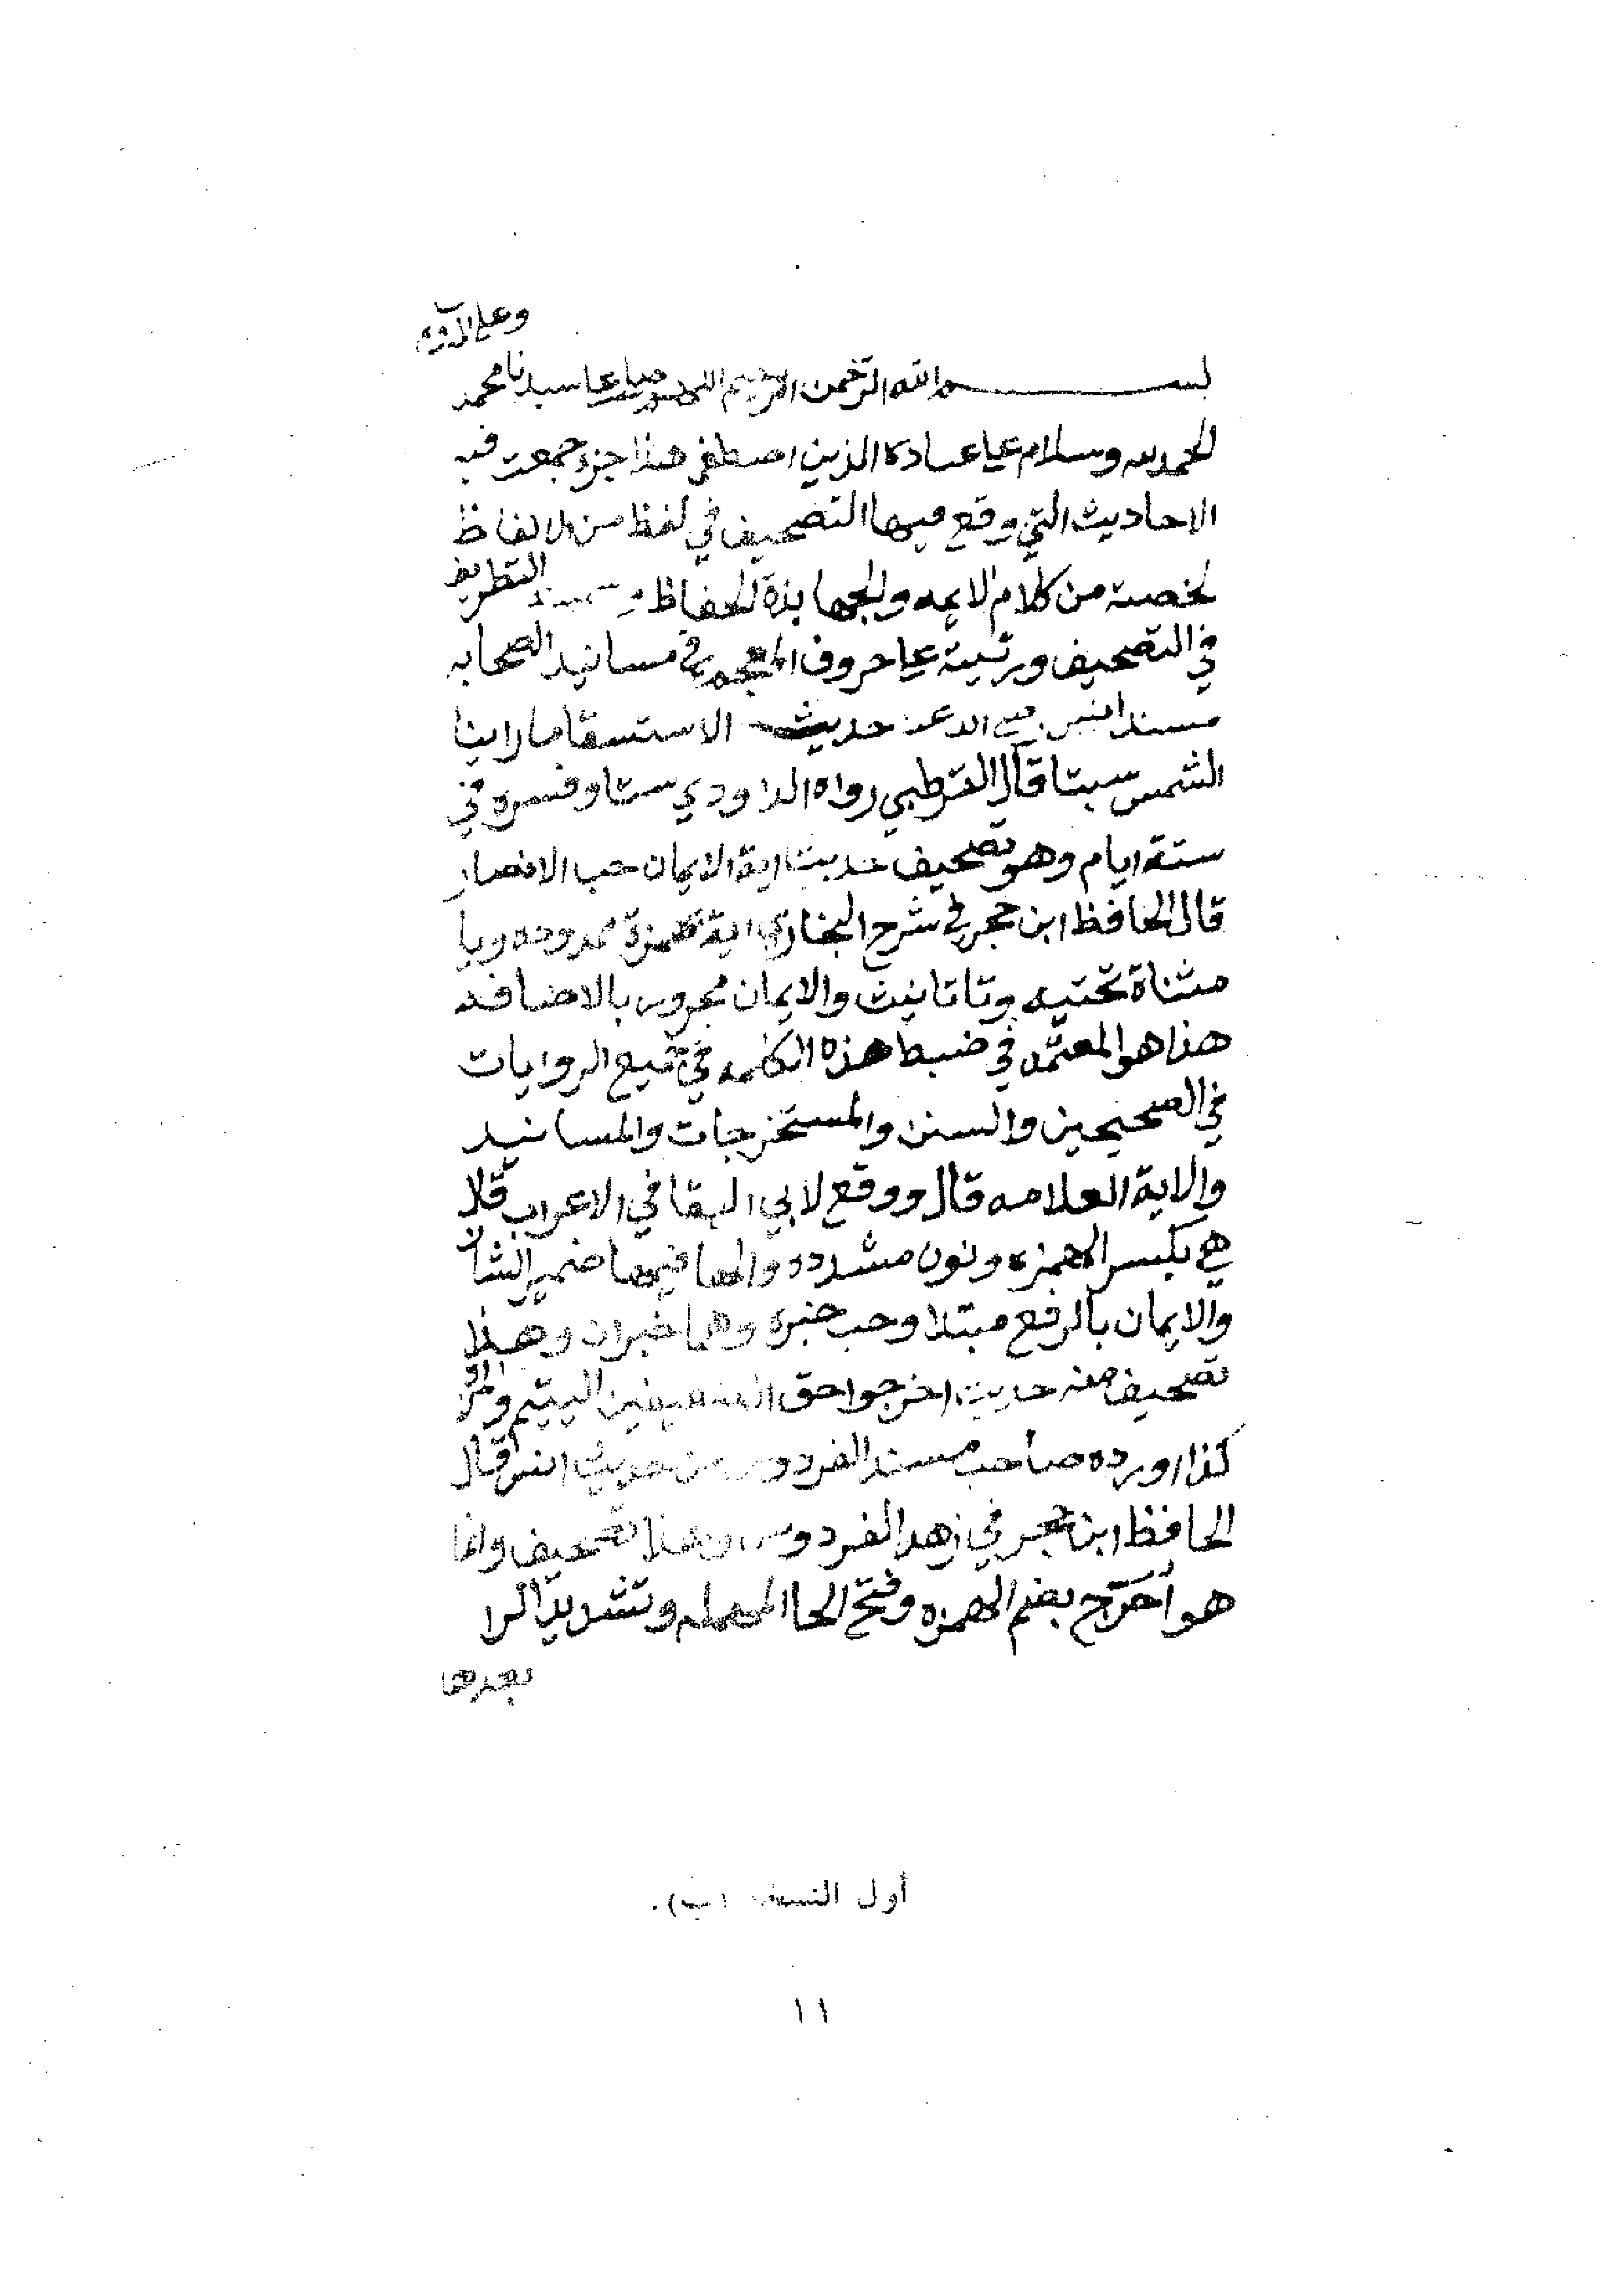 وعلى اله
بسم الله الرحمن الرحيم اللهم صل على سيدنا محمد
الحمد لله وسلام على عباده الذين اصطفى هذا جزء جمعت فيه
الاحاديث التي وقع فيها التصحيف في لفظ من الالفاظ
لخصته من كلام الايمه والجهابذة الحفاظ وسميته التطريف
في التصحيف ورتبته على حروف المعجم في مسانيد الصحابه
مسند انس رضي الله عنه حديث الاستسقا ما راينا
الشمس سبتا قال القرطبي رواه الداودي ستا وفسره في
ستة ايام وهو تصحيف حديث اية الايمان حب الانصار
قال الحافظ ابن حجر في شرح البخاري اية بهمزة ممدوده ويا
مثناة تحتيه وتا تانيث والايمان مجرور بالاضافه
هذا هو المعتمد في ضبط هذه الكلمه في جميع الروايات
في الصحيحين والسنن والمستخرجات والمسانيد
والاية العلامه قال ووقع لابي البقا في الاعراب قال
هي بكسر الهمزه ونون مشدده والها فيها ضمير الشان
والايمان بالرفع مبتدا وحب خبره وهما خبران وهذا
تصحيف منه حديث اخرجوا حق الضعيفين اليتيم والمراة
كذا اورده صاحب مسند الفردوس من حديث انس قال
الحافظ ابن حجر في زهر الفردوس وهذا تصحيف وانما
هو أُحَرِّج بضم الهمزه وفتح الحا المهمله وتشديد الرا
بعدها
أول النسخة (ب).
١١